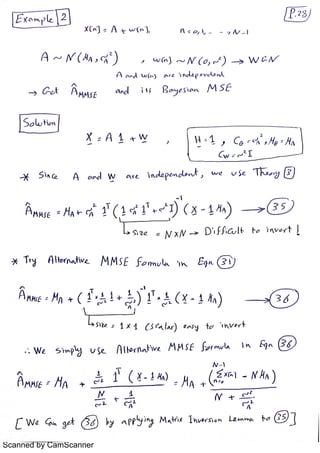 P.28)
Example 2
X[n] = A + w[n], n = 0, 1, - - -, N-1
A ~ N(μA, σA²) , w[n] ~ N(0, σ²) → WGN
A and w[n] are independent
→ Get ÂMMSE and its Bayesian MSE
Solution
X = A 1 + W , H = 1 , Cθ = σA², μθ = μA
Cw = σ² I
* Since A and W are independent, we use Theory 3
ÂMMSE = μA + σA² 1ᵀ (1 σA² 1ᵀ + σ² I)⁻¹ (X - 1 μA) → 35
↳ size = N×N → Difficult to invert !
* Try Alternative MMSE formula in Eqn 31
ÂMMSE = μA + (1ᵀ 1/σ² 1 + 1/σA²)⁻¹ 1ᵀ 1/σ² (X - 1 μA) → 36
↳ size = 1×1 (scalar) easy to invert
∴ We simply use Alternative MMSE formula in Eqn 36
ÂMMSE = μA + (1/σ² 1ᵀ (X - 1 μA)) / (N/σ² + 1/σA²) = μA + (Σ_{n=0}^{N-1} x[n] - N μA) / (N + σ²/σA²)
[ We can get 36 by applying Matrix Inversion Lemma to 35 ]
Scanned by CamScanner